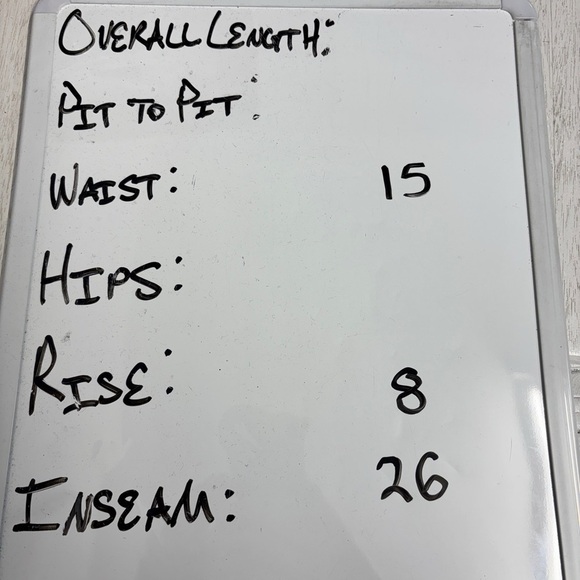 Overall Length:
Pit to Pit:
Waist: 15
Hips:
Rise: 8
Inseam: 26